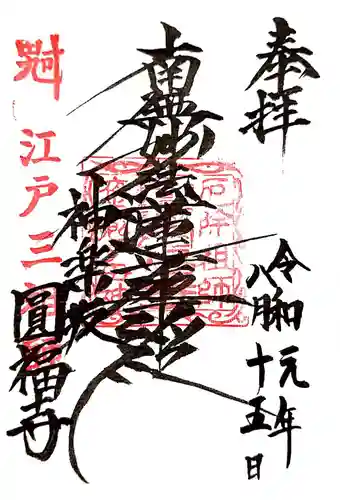 奉拝
令和元年
八月十五日
南無妙法蓮華経
神楽坂
圓福寺
江戸三